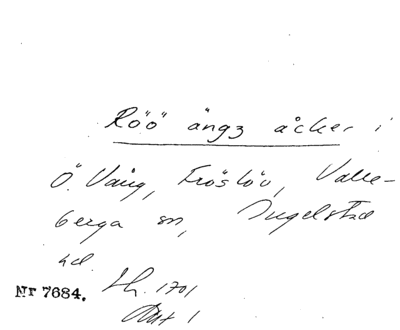 Röö ängz åcker i
Ö. Vång, Fröslöv, Valle-
berga sn, Ingelstad
hd. Lh. 1701
Nr 7684.
Akt 1